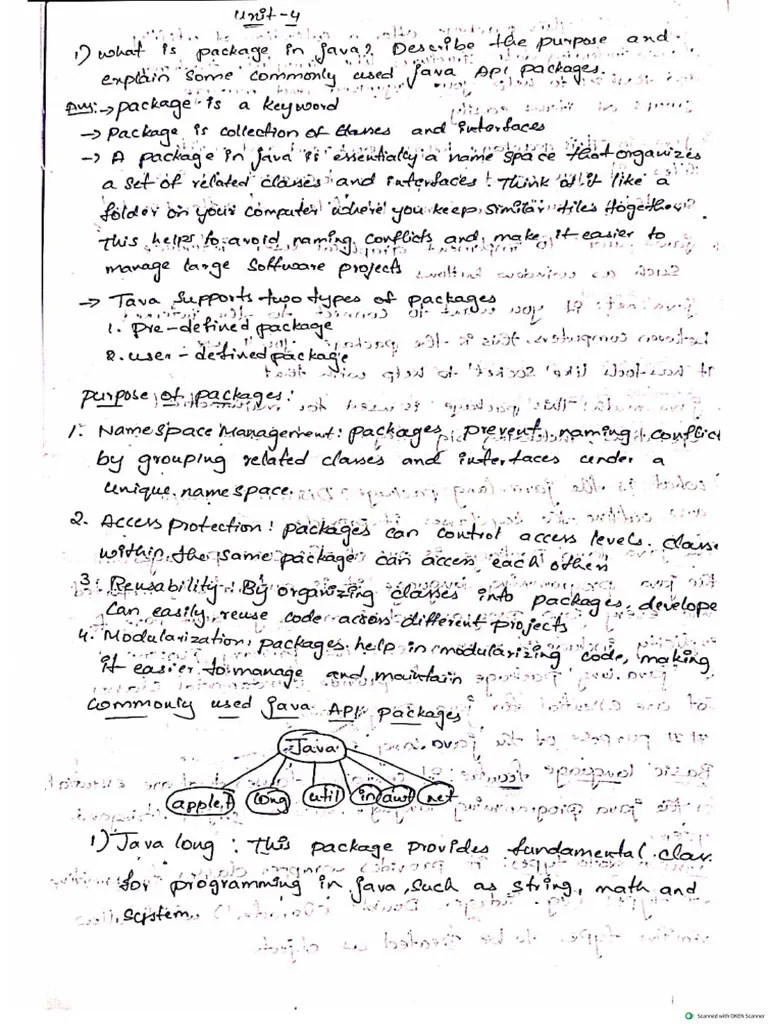 Unit-4
1) What is package in java? Describe the purpose and
explain some commonly used java API packages.
Ans:→ package is a keyword
→ Package is collection of classes and interfaces
→ A package in java is essentially a name space that organizes
a set of related classes and interfaces. Think of it like a
folder on your computer where you keep similar files together.
This helps to avoid naming conflicts and make it easier to
manage large software projects
→ Java supports two types of packages
1. Pre-defined package
2. user-defined package
purpose of packages:
1. Name space Management: packages prevent naming conflict
by grouping related classes and interfaces under a
unique name space.
2. Access protection: packages can control access levels. classe
within the same package can access each others
3. Reusability: By organizing classes into packages, develope
can easily reuse code across different projects
4. Modularization, packages help in modularizing code, making
it easier to manage and maintain
Commonly used java API packages
Java
applet long util in awt net
1) Java long: This package provides fundamental clas
for programming in java, such as string, math and
system.
Scanned with OKEN Scanner